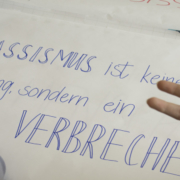 ASSISMUS ist kein
ng, sondern ein
VERBRECHE